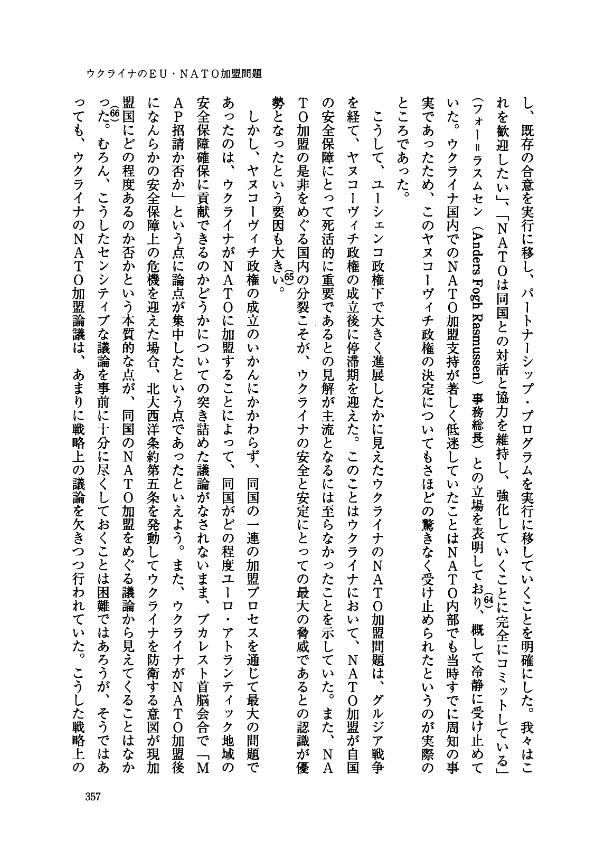 ウクライナのEU・NATO加盟問題
し、既存の合意を実行に移し、パートナーシップ・プログラムを実行に移していくことを明確にした。我々はこ
れを歓迎したい」、「NATOは同国との対話と協力を維持し、強化していくことに完全にコミットしている」
(フォー＝ラスムセン (Anders Fogh Rasmussen) 事務総長) との立場を表明しており(64)、概して冷静に受け止めて
いた。ウクライナ国内でのNATO加盟支持が著しく低迷していたことはNATO内部でも当時すでに周知の事
実であったため、このヤヌコーヴィチ政権の決定についてもさほどの驚きなく受け止められたというのが実際の
ところであった。
こうして、ユーシェンコ政権下で大きく進展したかに見えたウクライナのNATO加盟問題は、グルジア戦争
を経て、ヤヌコーヴィチ政権の成立後に停滞期を迎えた。このことはウクライナにおいて、NATO加盟が自国
の安全保障にとって死活的に重要であるとの見解が主流となるには至らなかったことを示していた。また、NA
TO加盟の是非をめぐる国内の分裂こそが、ウクライナの安全と安定にとっての最大の脅威であるとの認識が優
勢となったという要因も大きい(65)。
しかし、ヤヌコーヴィチ政権の成立のいかんにかかわらず、同国の一連の加盟プロセスを通じて最大の問題で
あったのは、ウクライナがNATOに加盟することによって、同国がどの程度ユーロ・アトランティック地域の
安全保障確保に貢献できるのかどうかについての突き詰めた議論がなされないまま、ブカレスト首脳会合で「M
AP招請か否か」という点に論点が集中したという点であったといえよう。また、ウクライナがNATO加盟後
になんらかの安全保障上の危機を迎えた場合、北大西洋条約第五条を発動してウクライナを防衛する意図が現加
盟国にどの程度あるのか否かという本質的な点が、同国のNATO加盟をめぐる議論から見えてくることはなか
った(66)。むろん、こうしたセンシティブな議論を事前に十分に尽くしておくことは困難ではあろうが、そうではあ
っても、ウクライナのNATO加盟論議は、あまりに戦略上の議論を欠きつつ行われていた。こうした戦略上の
357